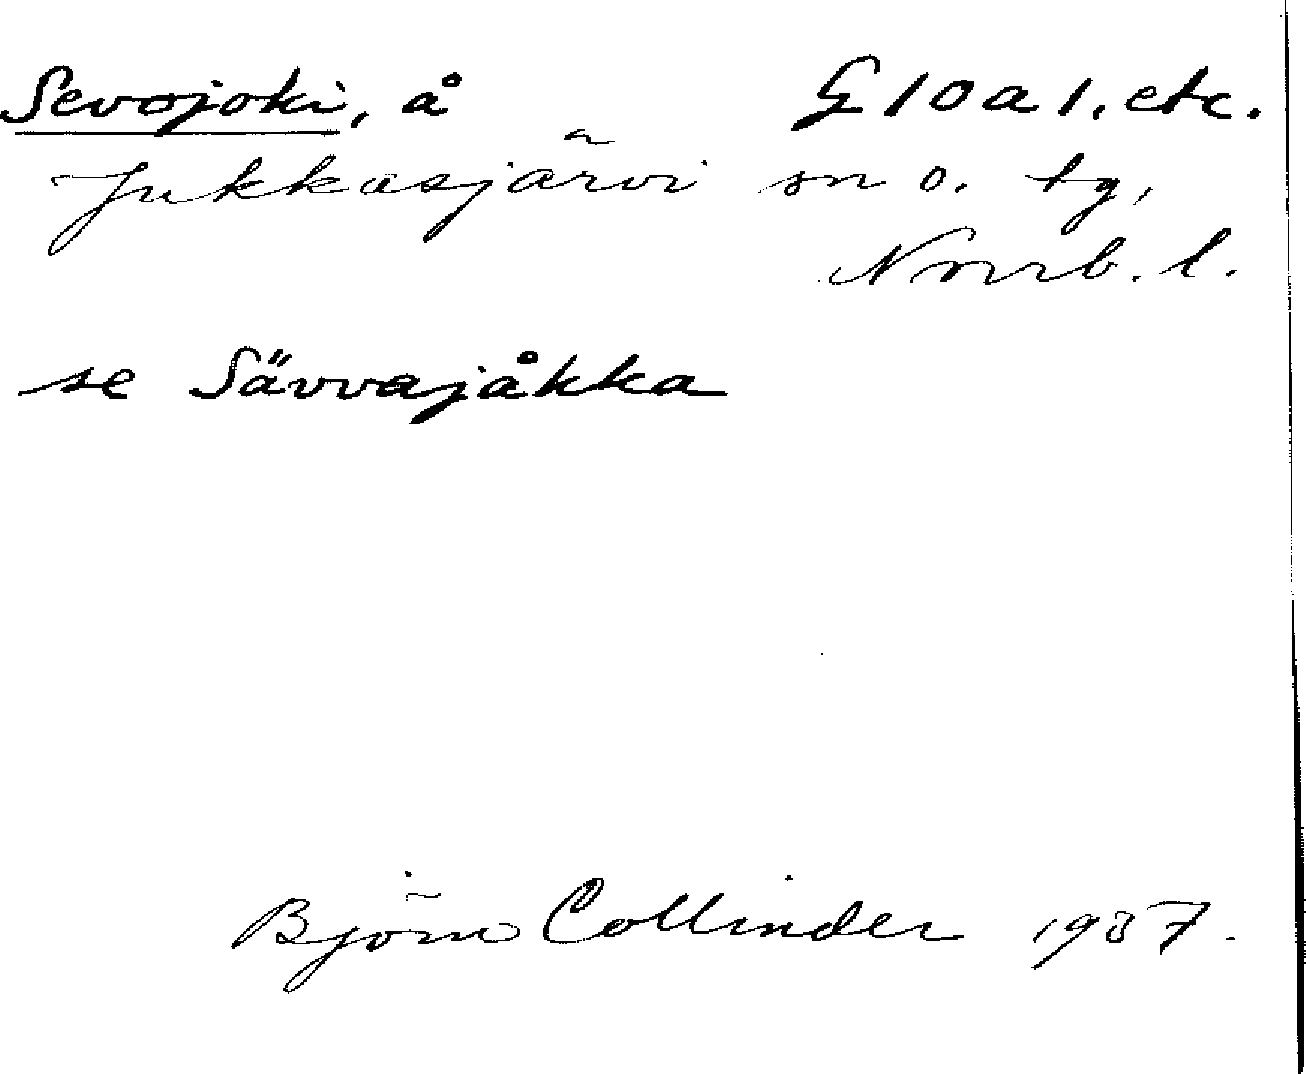 Sevojoki, å G 10 a 1. etc.
Jukkasjärvi sn o. tg,
Norrb. l.
se Sävvajåkka
Björn Collinder 1937.